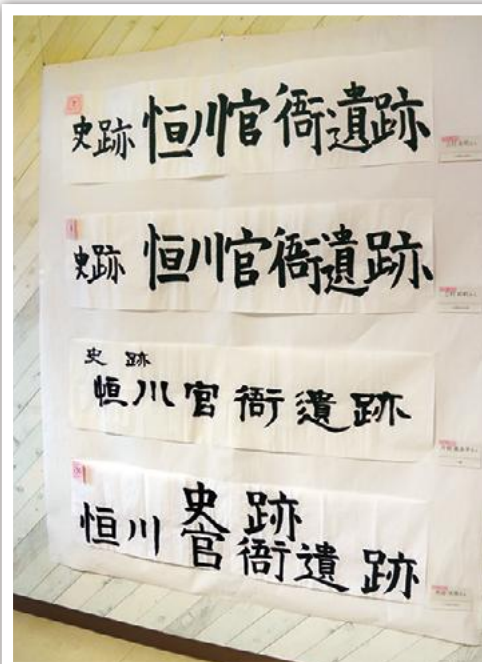 史跡 恒川官衙遺跡
史跡 恒川官衙遺跡
史跡
恒川官衙遺跡
史跡
恒川官衙遺跡